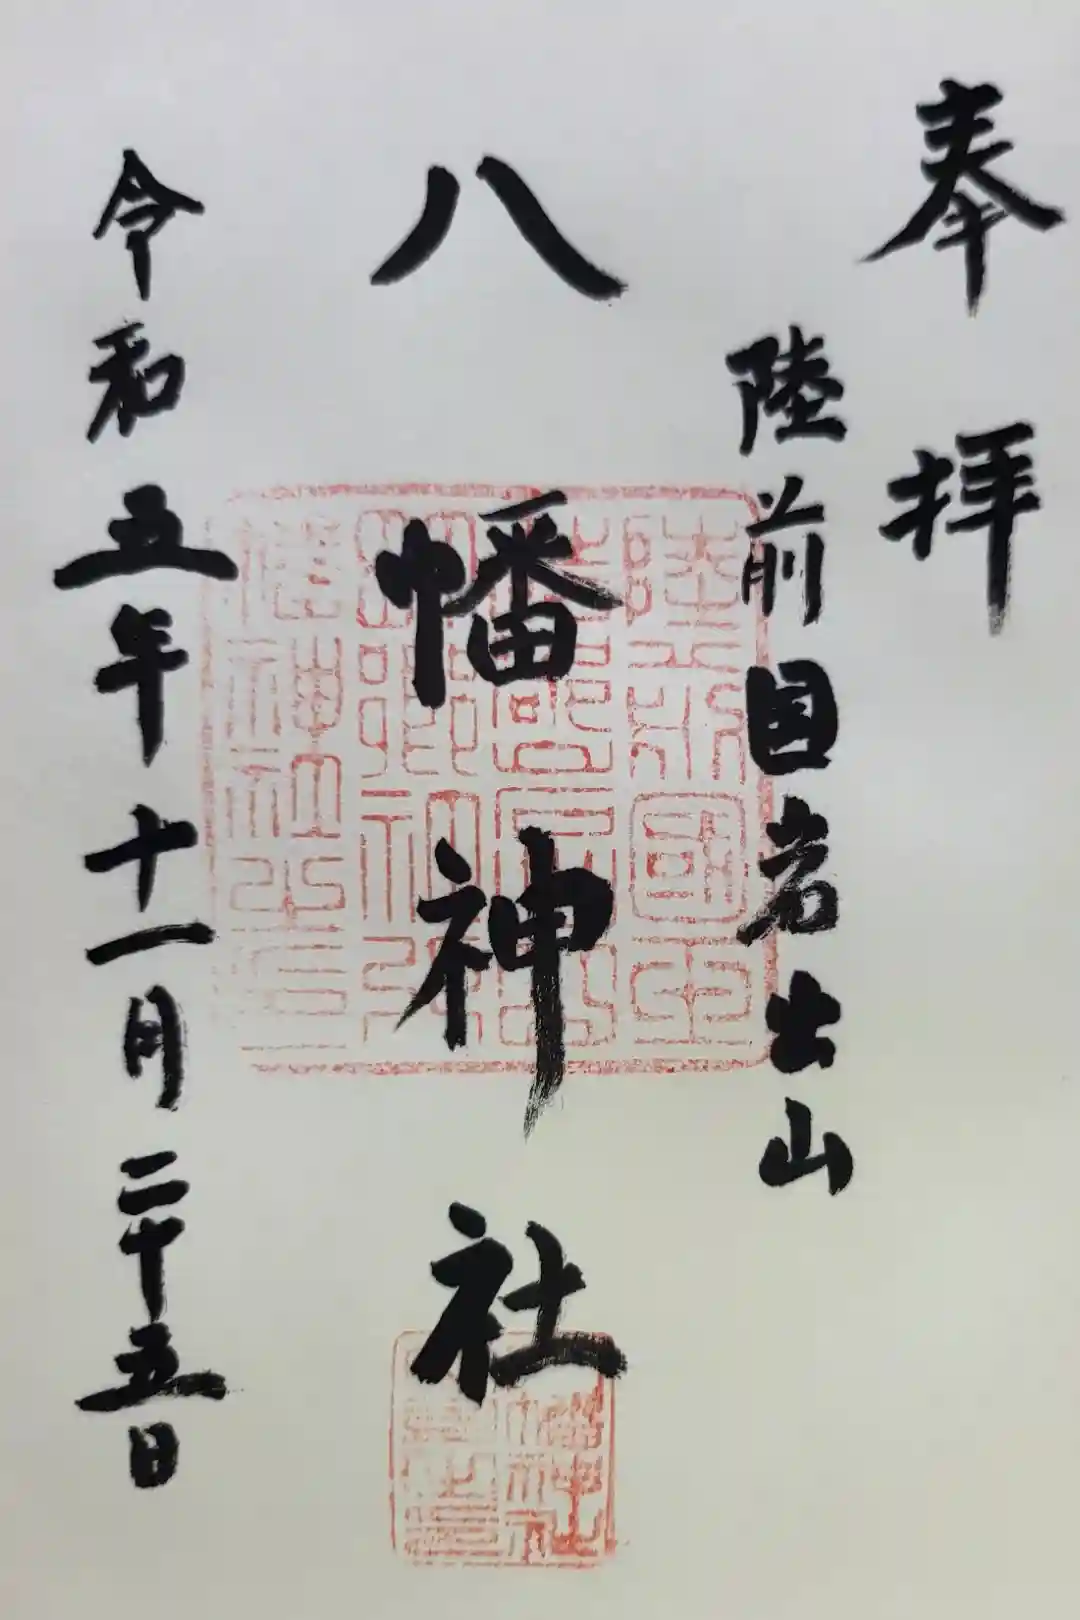 奉拝
陸前国岩出山
八幡神社
令和五年十一月二十五日